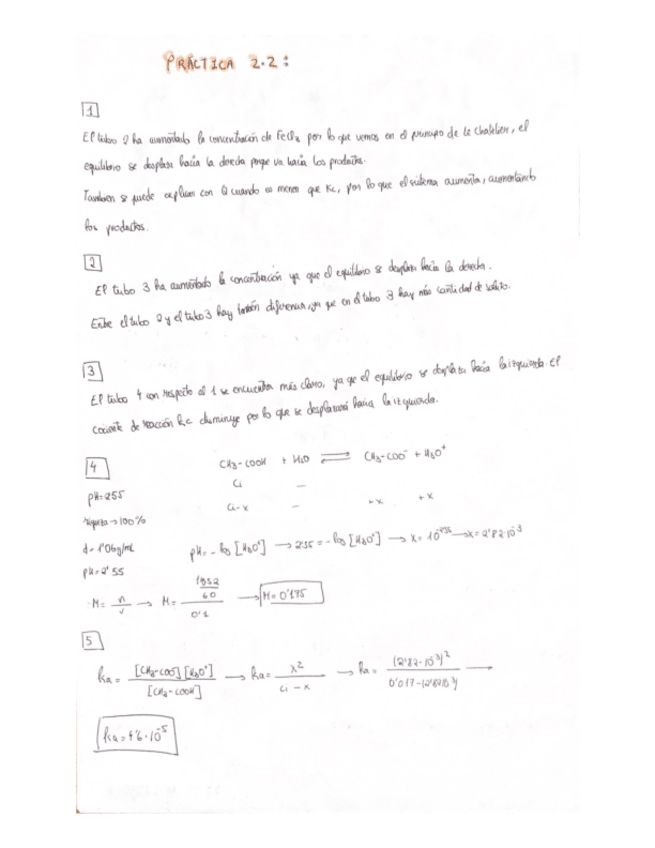 PRÁCTICA 2.2:
1
El tubo 2 ha aumentado la concentración de FeCl3 por lo que vemos en el principio de Le Chatelier, el
equilibrio se desplaza hacia la derecha porque va hacia los productos.
También se puede explicar con Q cuando es menor que Kc, por lo que el sistema aumenta, aumentando
los productos.
2
El tubo 3 ha aumentado la concentración ya que el equilibrio se desplaza hacia la derecha.
Entre el tubo 2 y el tubo 3 hay también diferencia, ya que en el tubo 3 hay más cantidad de soluto.
3
El tubo 4 con respecto al 1 se encuentra más claro, ya que el equilibrio se desplaza hacia la izquierda. El
cociente de reacción disminuye por lo que se desplazará hacia la izquierda.
4
CH3-COOH + H2O ⇌ CH3-COO⁻ + H3O⁺
Ci —
pH=255
Ci-x — +x +x
riqueza → 100%
d= 1'06g/mL
pH= -log [H3O⁺] → 2'55 = -log [H3O⁺] → x= 10^-2'55 → x= 2'82·10^-3
pH= 2'55
M= n/v → M= /60 / 0'1 → M= 0'175
5
Ka= [CH3-COO⁻][H3O⁺] / [CH3-COOH] → Ka= x² / Ci-x → Ka= (2'82·10^-3)² / →
Ka= 4'6·10^-5